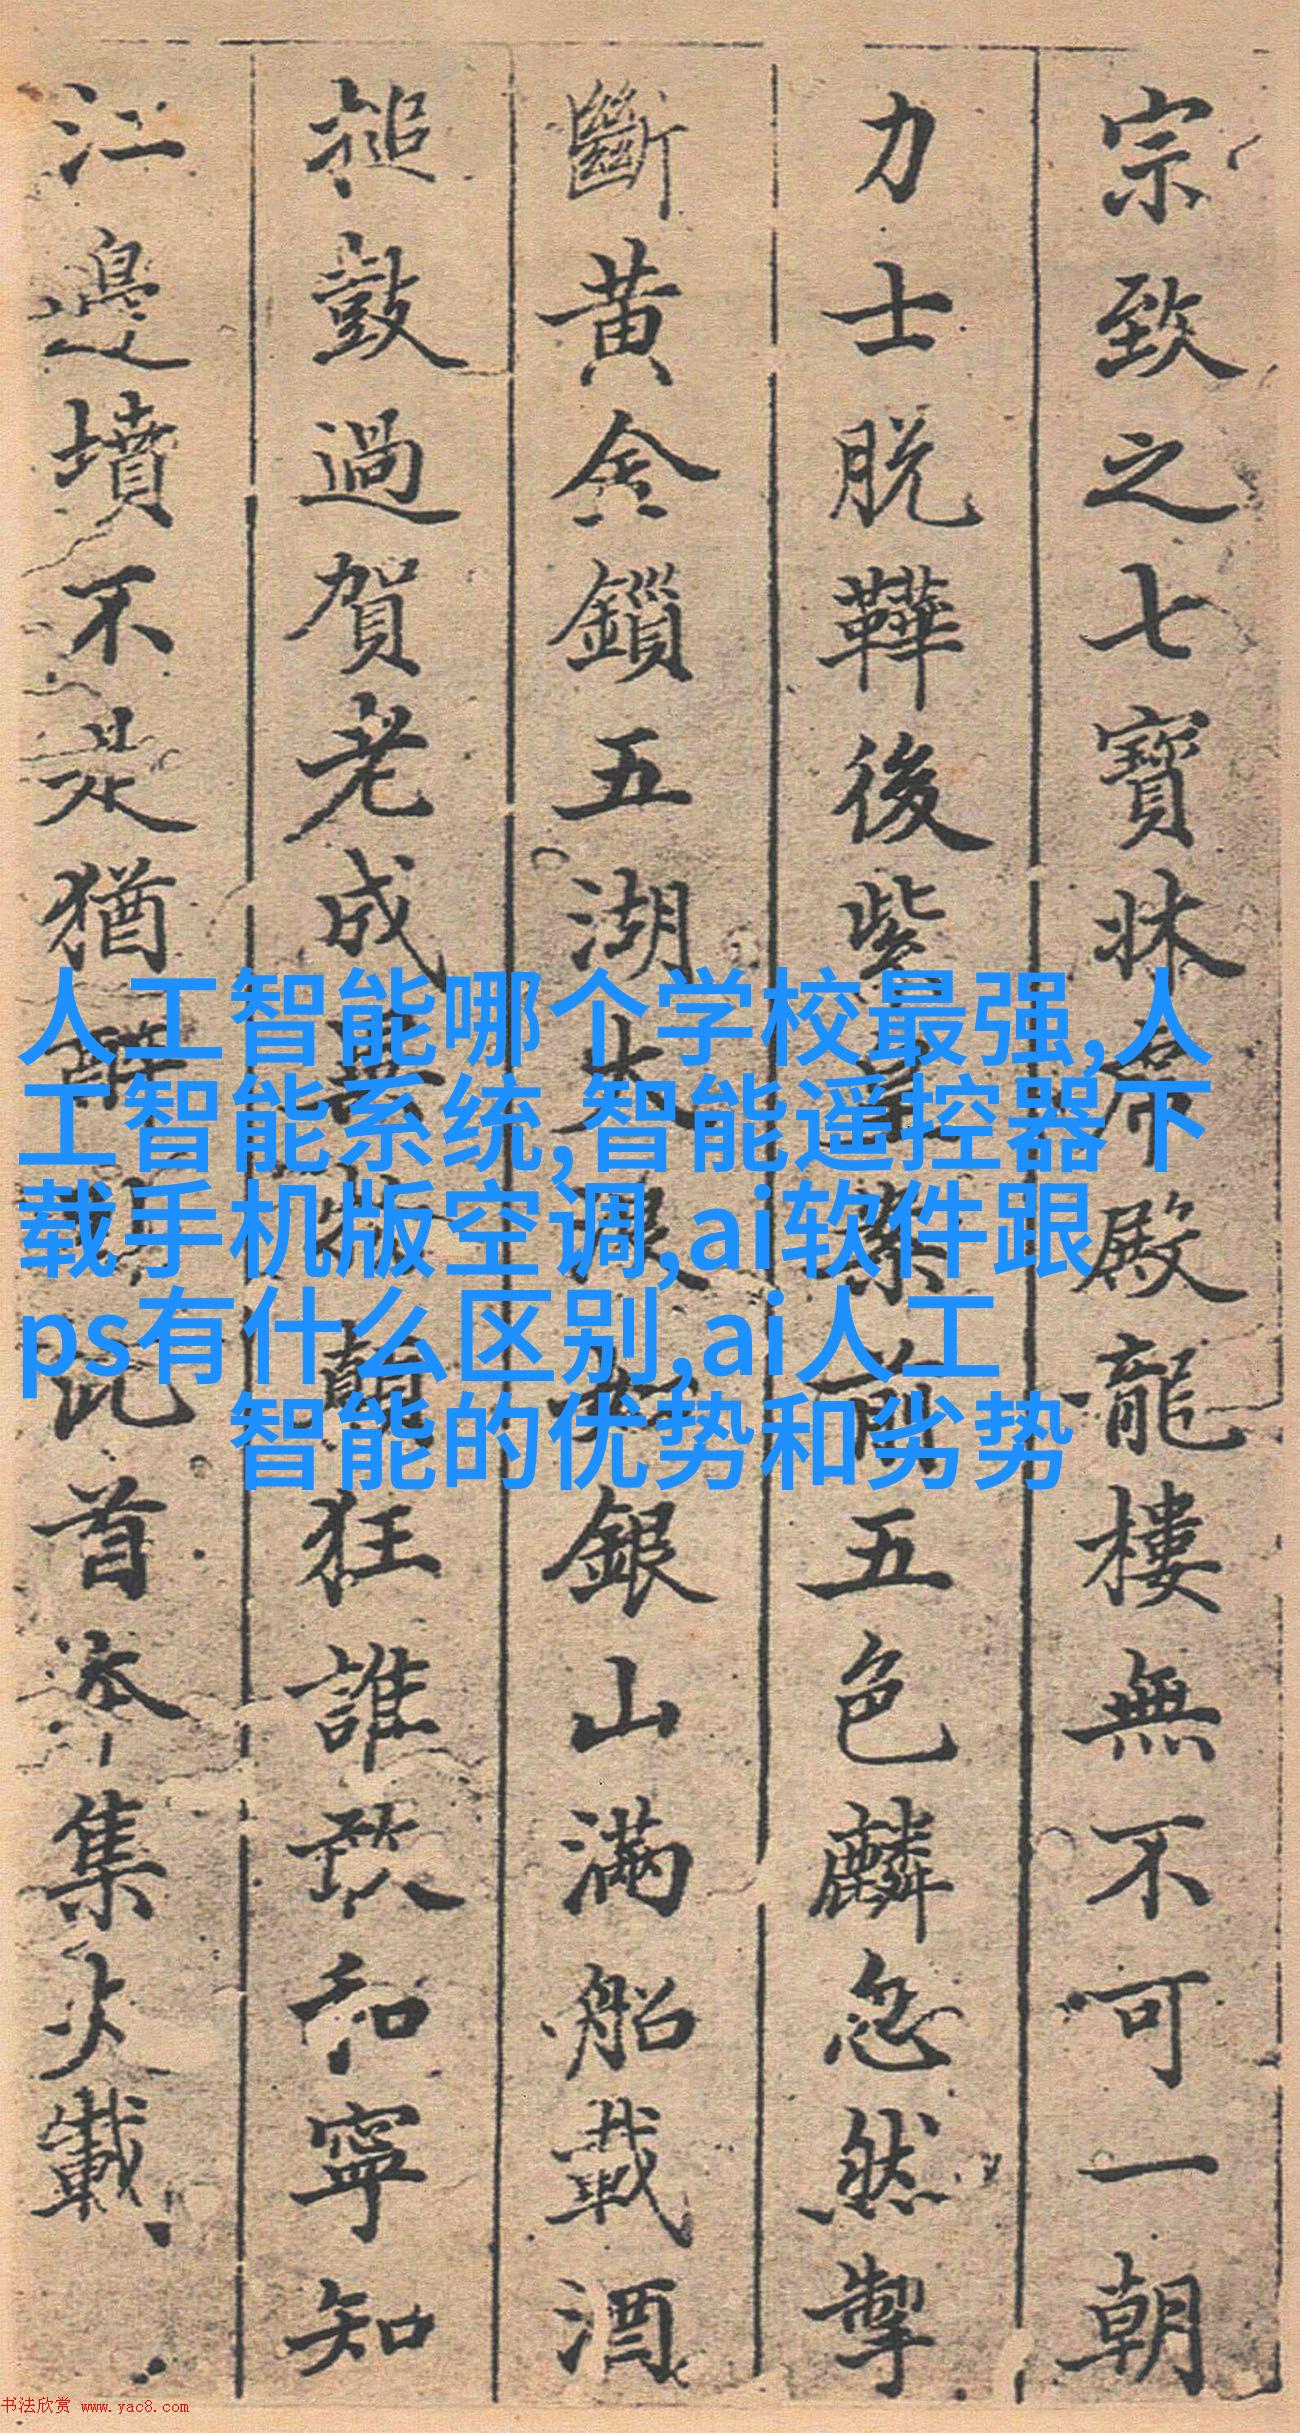 宗致之七寶牀帝殿龍樓無不可一朝
力士脱鞾後紫皇案前五色麟忽然掣
斷黃金鎖五湖大浪如銀山滿船載酒
搥鼓過賀老成異物顛狂誰敢和寧知
江邊墳不是猶醉眠此首本集少載
人工智能哪个学校最强,人
工智能系统,智能遥控器下
载手机版空调,ai软件跟
ps有什么区别,ai人工
智能的优势和劣势
书法欣赏 www.yac8.com